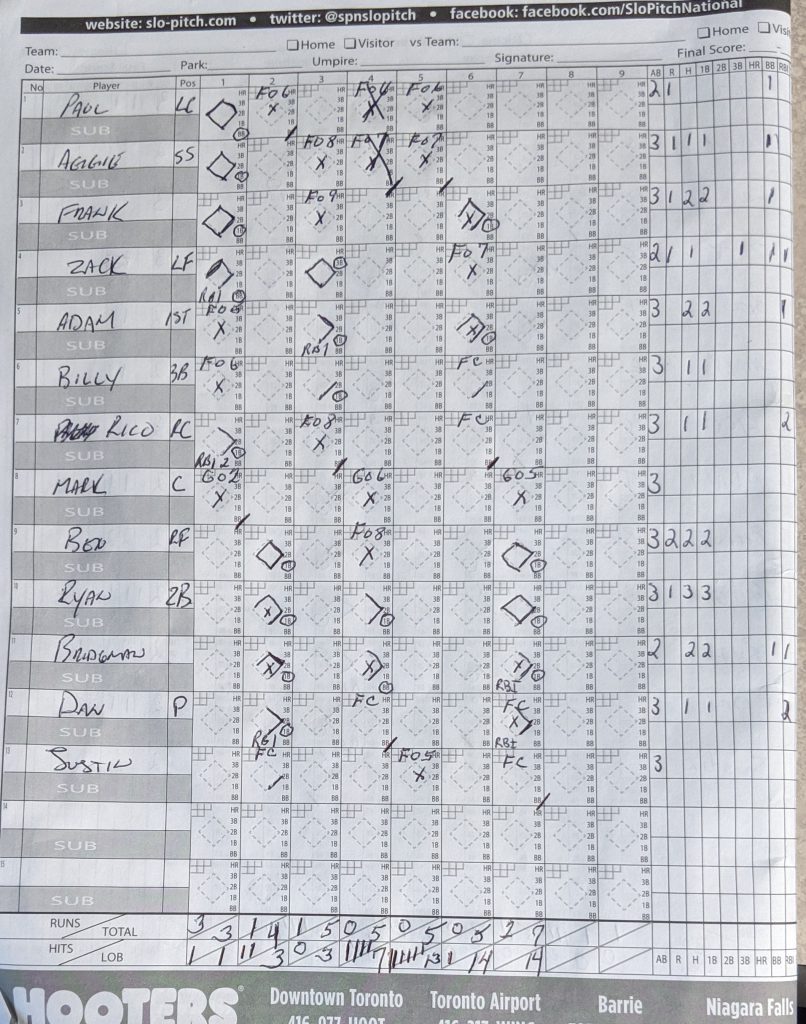 website: slo-pitch.com • twitter: @spnslopitch • facebook: facebook.com/SloPitchNational
Team: Home Visitor vs Team: Home Visi
Date: Park: Umpire: Signature: Final Score:
No Player Pos 1 2 3 4 5 6 7 8 9 AB R H 1B 2B 3B HR BB RBI
1 PAUL LC FO6 FO6 FO6 2 1 1
SUB
2 SS FO8 FO7 FO7 3 1 1 1 1
SUB
3 FRANK FO9 3 1 2 2 1
SUB
4 ZACK LF RBI FO7 2 1 1 1 1 1
SUB
5 ADAM 1ST RBI 3 2 2 1
SUB
6 BILLY 3B FO6 FC 3 1 1
SUB
7 RICO RC RBI 2 FO8 FC 3 1 1 2
SUB
8 MARK C GO2 GO6 GO5 3
SUB
9 BEN RF FO8 3 2 2 2
SUB
10 RYAN 2B 3 1 3 3
SUB
11 BRIDGMAN RBI 2 2 2 1 1
SUB
12 DAN P RBI FC FC RBI 3 1 1 2
SUB
13 JUSTIN FC FO5 FC 3
SUB
14
SUB
15
SUB
RUNS TOTAL 3 3 1 4 1 5 0 5 0 5 0 5 2 7
HITS LOB 1 1 11 3 0 3 7 13 1 14 14 AB R H 1B 2B 3B HR BB RBI
HOOTERS Downtown Toronto Toronto Airport Barrie Niagara Falls